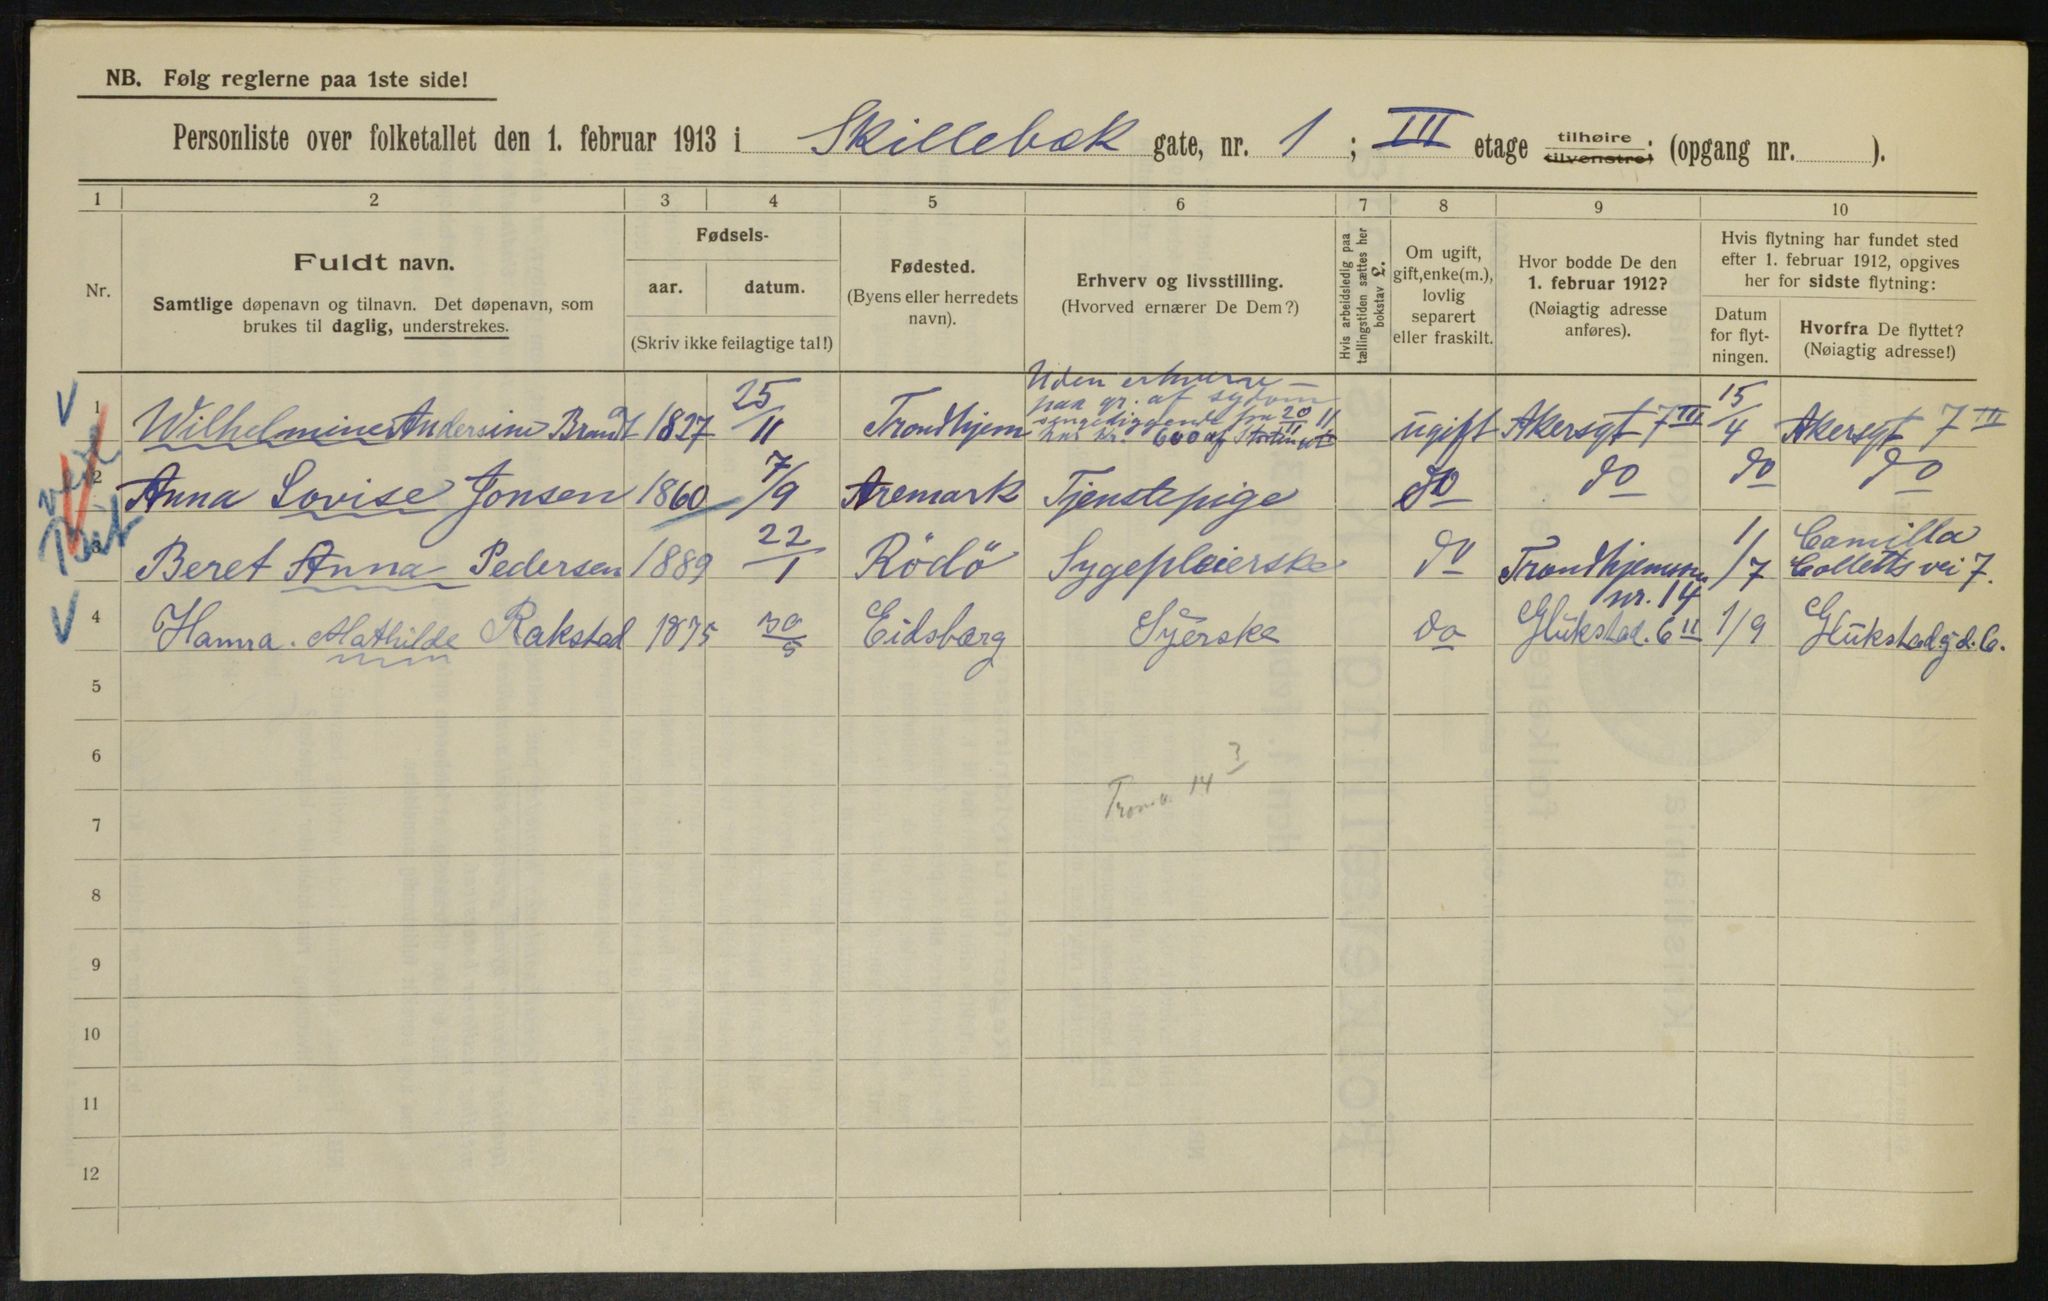 NB. Følg reglerne paa 1ste side!
Personliste over folketallet den 1. februar 1913 i Skillebæk gate, nr. 1 ; III etage tilhøire tilvenstre) : (opgang nr. ).
1 2 3 4 5 6 7 8 9 10
Nr.
Fuldt navn.
Samtlige døpenavn og tilnavn. Det døpenavn, som
brukes til daglig, understrekes.
Fødsels-
aar. datum.
(Skriv ikke feilagtige tal!)
Fødested.
(Byens eller herredets
navn).
Erhverv og livsstilling.
(Hvorved ernærer De Dem?)
Hvis arbeidsledig paa
tællingstiden sættes her
bokstav L.
Om ugift,
gift, enke(m.),
lovlig
separert
eller fraskilt.
Hvor bodde De den
1. februar 1912?
(Nøiagtig adresse
anføres).
Hvis flytning har fundet sted
efter 1. februar 1912, opgives
her for sidste flytning:
Datum
for flyt-
ningen.
Hvorfra De flyttet?
(Nøiagtig adresse!)
Uden erhverv –
paa gr. af sygdom
sengeliggende fra 20/11 11
1 Wilhelmine Andersine Brandt 1827 25/11 Trondhjem 600 af ugift Akersgt 7 III 15/4 Akersgt 7 III
2 Anna Lovise Jonsen 1860 7/9 Aremark Tjenstepige do do do do
3 Beret Anna Pedersen 1889 22/1 Rödö Sygepleierske do Trondhjemsv. nr. 14 1/7 Camilla Colletts vei 7.
4 Hanna. Mathilde Rakstad 1875 30/5 Eidsbærg Syerske do Glükstad. 6 II 1/9 Glükstadgd. 6.
5
6
Tronv. 14 3
7
8
9
10
11
12